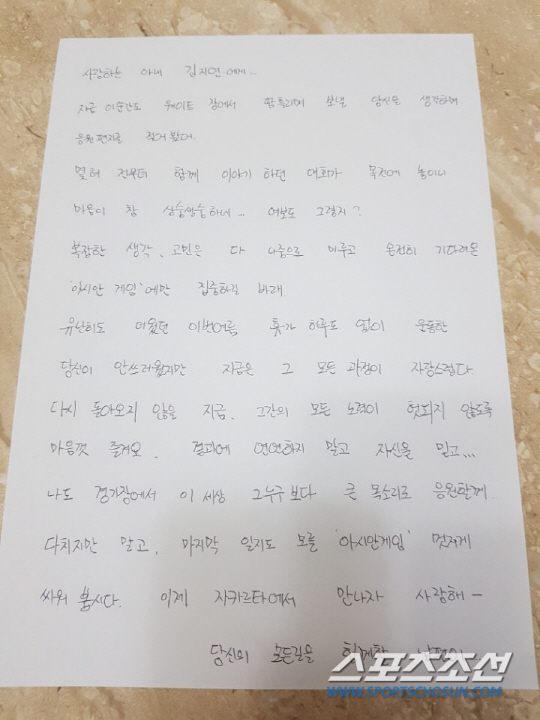 사랑하는 아내 김지연에게..
지금 이순간도 웨이트 장에서 땀흘리며 보낼 당신을 생각하며
응원편지를 적어봤어.
몇해 전부터 함께 이야기 하던 대회가 목전에 놓이니
마음이 참 싱숭생숭하네... 여보도 그렇지?
복잡한 생각, 고민은 다 나중으로 미루고 온전히 기다려온
'아시안 게임'에만 집중하길 바래
유난히도 더웠던 이번여름 휴가 하루도 없이 운동한
당신이 안쓰러웠지만 지금은 그 모든 과정이 자랑스럽다.
다시 돌아오지 않을 지금, 그간의 모든 노력이 헛되지 않도록
마음껏 즐겨요. 결과에 연연하지 말고 자신을 믿고...
나도 경기장에서 이 세상 그누구보다 큰 목소리로 응원할께
다치지만 말고, 마지막 일지도 모를 '아시안게임' 멋지게
싸워 봅시다. 이제 자카르타에서 만나자 사랑해-
당신의 모든길을 함께할 남편이
스포츠조선
WWW.SPORTSCHOSUN.COM